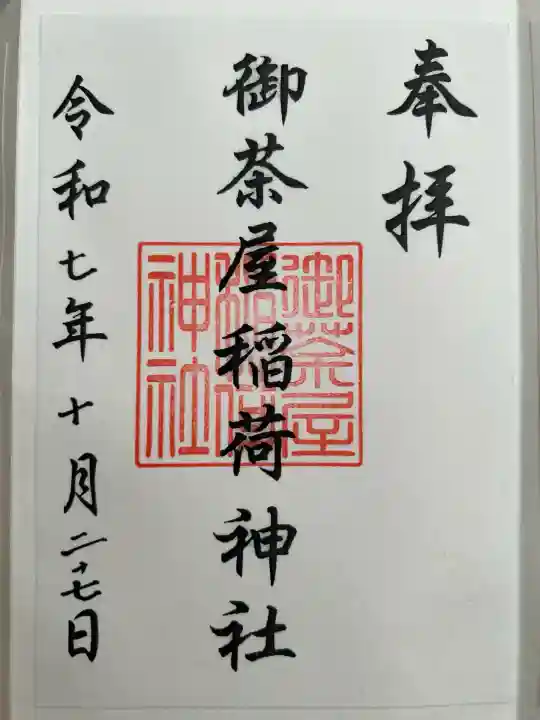 奉拝
御茶屋稲荷神社
御茶屋
稲荷
神社
令和七年十月二十七日